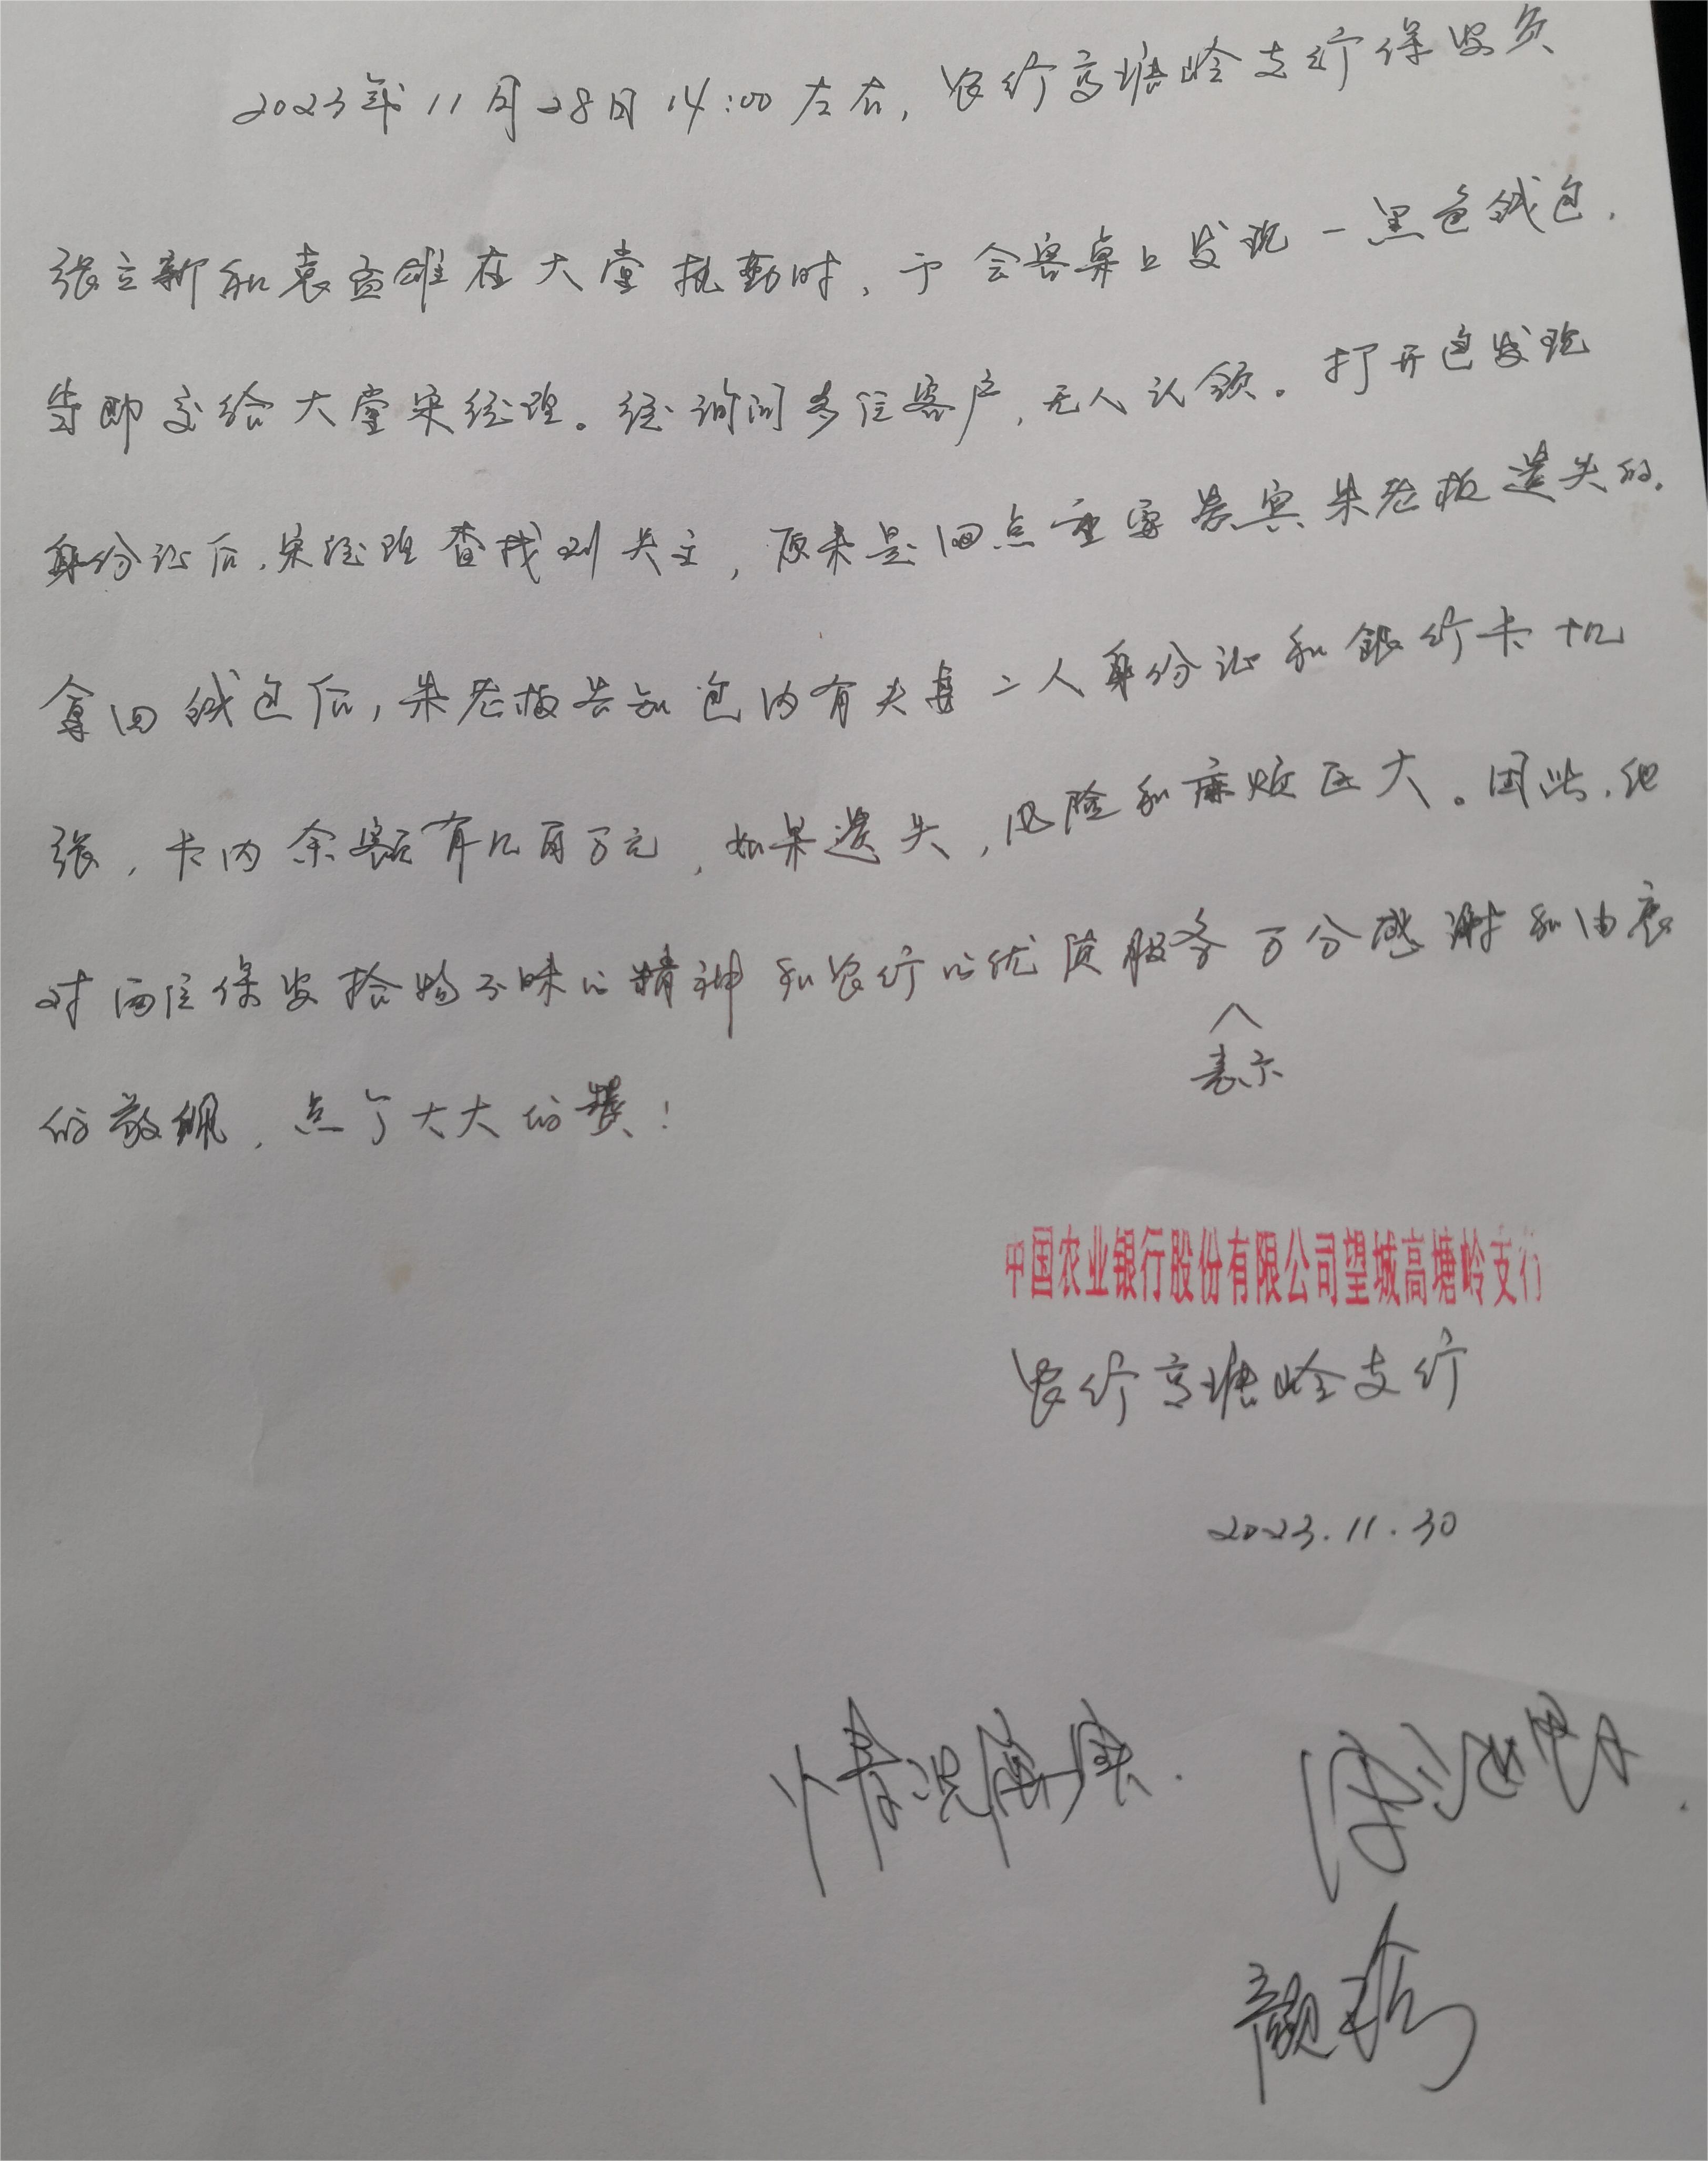 2023年11月28日14:00左右,农行高塘岭支行保安员
张立新和袁孟雄在大堂执勤时,于会客桌上发现一黑色钱包,
当即交给大堂宋经理。经询问多位客户,无人认领。打开包发现
身份证后,宋经理查找到失主,原来是网点重要贵宾朱老板遗失的。
拿回钱包后,朱老板告知包内有夫妻二人身份证和银行卡十几
张,卡内余额有几百万元,如果遗失,风险和麻烦巨大。因此,他
对两位保安拾物不昧的精神和农行的优质服务万分感谢和由衷
表示
的敬佩,点了大大的赞!
中国农业银行股份有限公司望城高塘岭支行
农行高塘岭支行
2023.11.30
情况属实.
颜